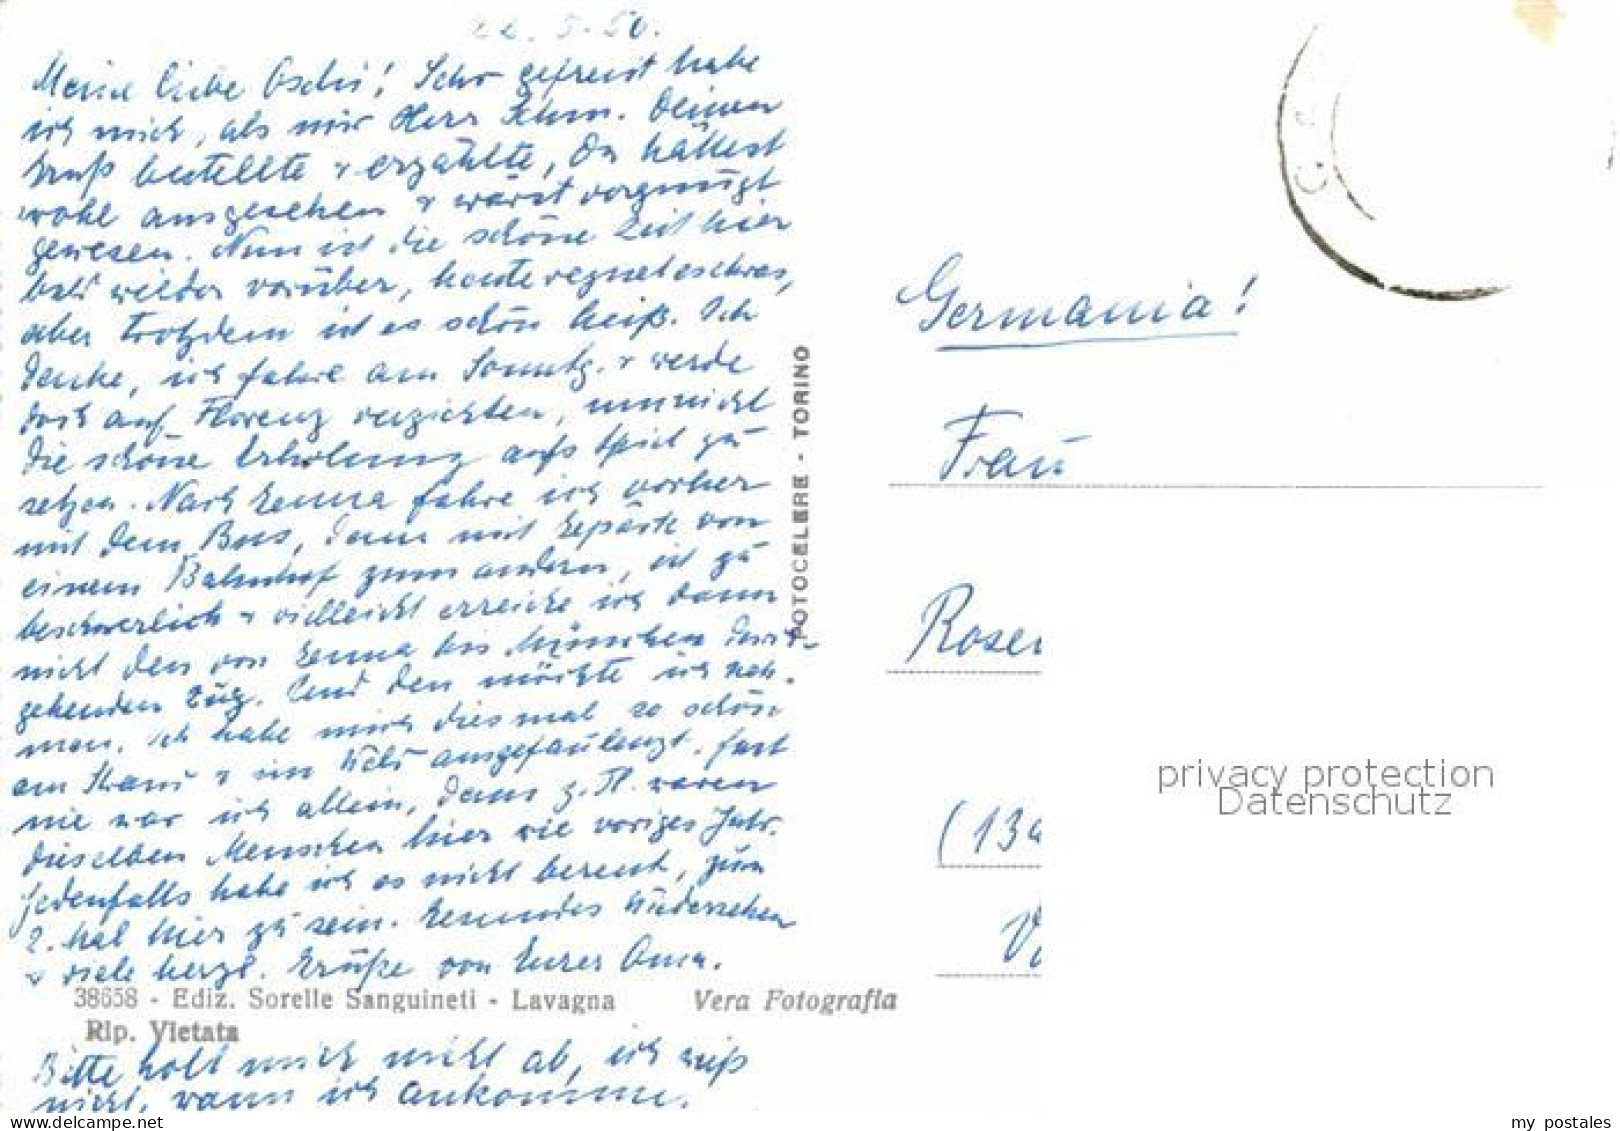 22.5.56.
Meine liebe Oschi! Sehr gefreut habe
ich mich, als mir Herr Deinen
Gruß bestellte & erzählte, Du hättest
wohl ausgesehen & wärst vergnügt
gewesen. Nun ist die schöne Zeit hier
bald wieder vorüber, heute regnet es etwas,
aber trotzdem ist es schön heiß. Ich
denke, ich fahre am Sonntg. & werde
doch auf Florenz verzichten, um nicht
die schöne Erholung aufs Spiel zu
setzen. Nach Genua fahre ich vorher
mit dem Bus, dann mit Gepäck von
einem Bahnhof zum andern, ist zu
beschwerlich & vielleicht erreiche ich dann
nicht den von Genua bis München durch-
gehenden Zug. Und den möchte ich neh-
men. Ich habe mich diesmal so schön
am Strand & im Wald ausgefaulenzt, fast
nie war ich allein, denn z. Tl. waren
dieselben Menschen hier wie voriges Jahr.
Jedenfalls habe ich es nicht bereut, zum
2. Mal hier zu sein. Gesundes Wiedersehen
& viele herzl. Grüße von Eurer Oma.
38658 - Ediz. Sorelle Sanguineti - Lavagna Vera Fotografia
Rip. Vietata
Bitte holt mich nicht ab, ich weiß
nicht, wann ich ankomme.
FOTOCELERE - TORINO
Germania!
Frau
Rosen
(13a
privacy protection
Datenschutz
www.delcampe.net
my_postales